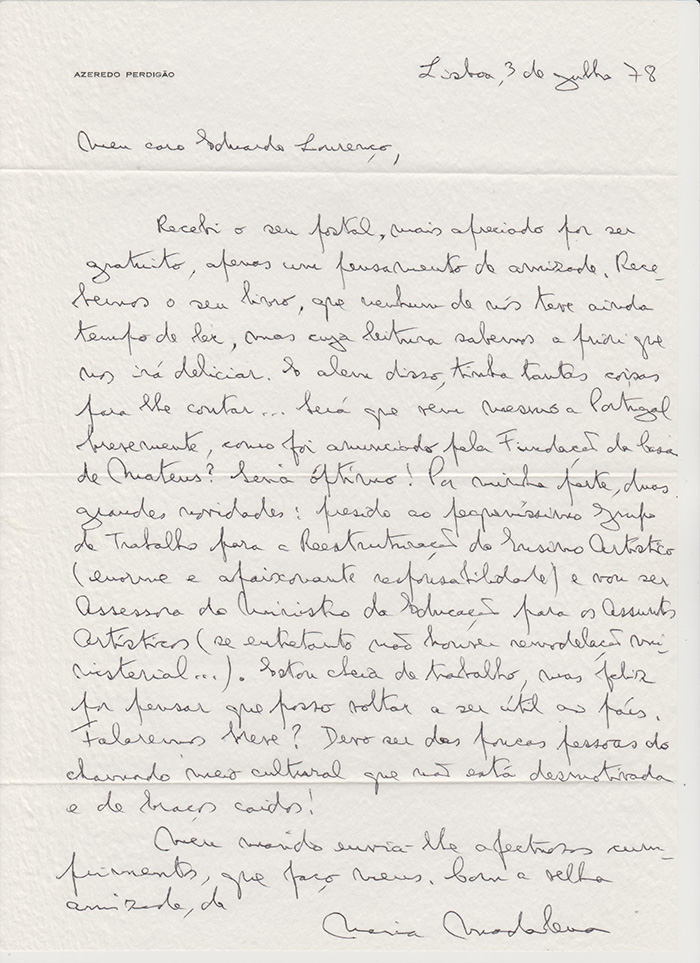 AZEREDO PERDIGÃO
Lisboa, 3 de julho 78
Meu caro Eduardo Lourenço,
Recebi o seu postal, mais apreciado por ser
gratuito, apenas um pensamento de amizade. Rece-
bemos o seu livro, que nenhum de nós teve ainda
tempo de ler, mas cuja leitura sabemos a priori que
nos irá deliciar. E alem disso, tinha tantas coisas
para lhe contar... Será que vem mesmo a Portugal
brevemente, como foi anunciado pela Fundação da Casa
de Mateus? Seria óptimo! Por minha parte, duas
grandes novidades: presido ao pequeníssimo Grupo
de Trabalho para a Reestruturação do Ensino Artístico
(enorme e apaixonante responsabilidade) e vou ser
Assessora do Ministro da Educação para os Assuntos
Artísticos (se entretanto não houver remodelação mi-
nisterial...). Estou cheia de trabalho, mas feliz
por pensar que posso voltar a ser útil ao país.
Falaremos breve? Devo ser das poucas pessoas do
chamado meio cultural que não está desmotivada
e de braços caídos!
Meu marido envia-lhe afectuosos cum-
primentos, que faço meus. Com a velha
amizade, da
Maria Madalena